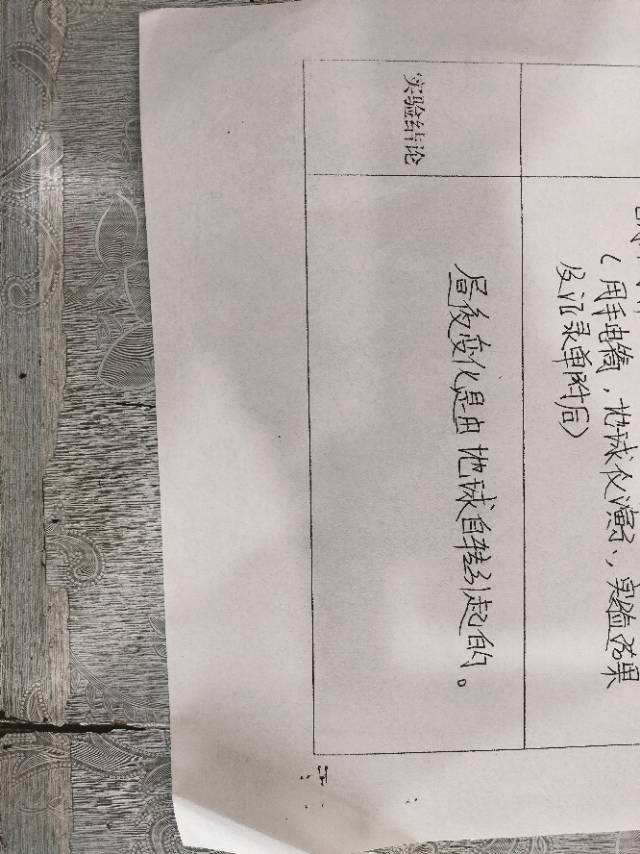 （用手电筒，地球仪演示，实验效果
及记录单附后）
实验结论
昼夜变化是由地球自转引起的。